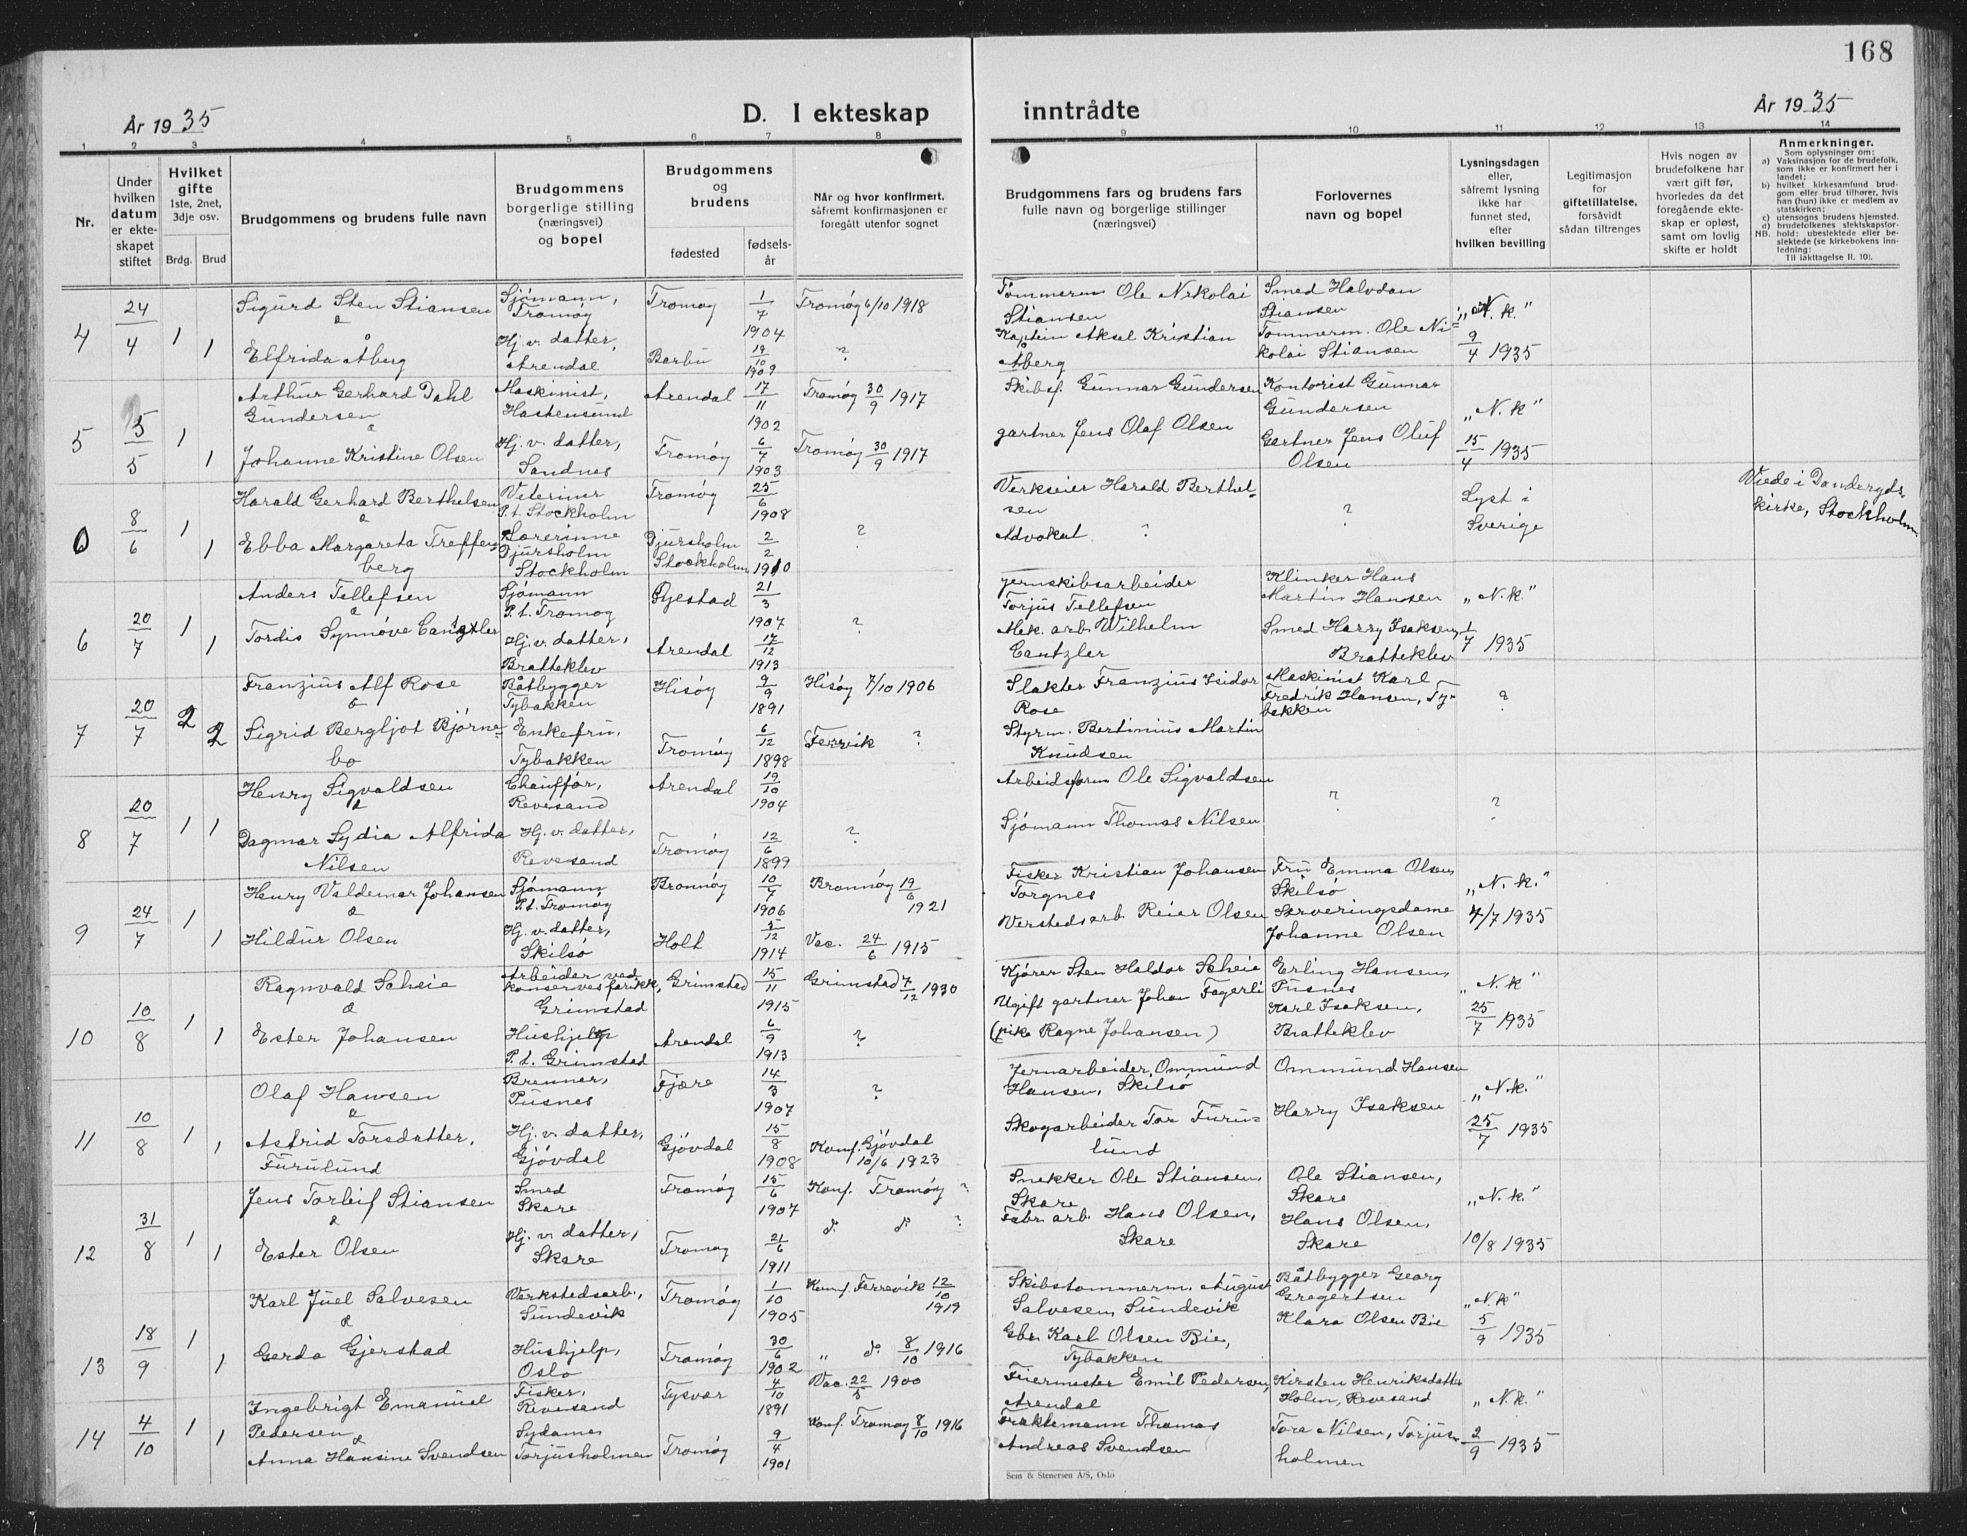 168
År 1935
D. I ekteskap
inntrådte
År 1935
1 2 3 4 5 6 7 8 9 10 11 12 13 14
Nr.
Under hvilken datum er ekteskapet stiftet
Hvilket gifte 1ste, 2net, 3dje osv.
Brdg. Brud
Brudgommens og brudens fulle navn
Brudgommens borgerlige stilling (næringsvei) og bopel
Brudgommens og brudens
fødested
fødselsår
Når og hvor konfirmert, såfremt konfirmasjonen er foregått utenfor sognet
Brudgommens fars og brudens fars fulle navn og borgerlige stillinger (næringsvei)
Forlovernes navn og bopel
Lysningsdagen eller, såfremt lysning ikke har funnet sted, efter hvilken bevilling
Legitimasjon for giftetillatelse, forsåvidt sådan tiltrenges
Hvis nogen av brudefolkene har vært gift før, hvorledes da det foregående ekteskap er opløst, samt om lovlig skifte er holdt
Anmerkninger.
Som oplysninger om:
a) Vaksinasjon for de brudefolk, som ikke er konfirmert her i landet;
b) hvilket kirkesamfund brudgom eller brud tilhører, hvis han (hun) ikke er medlem av statskirken;
c) utensogns brudens hjemsted.
d) brudefolkenes slektskapsforhold: ubeslektede eller beslektede (se kirkebokens innledning;
NB.
Til iakttagelse II. 10).
4 24/4 1 Sigurd Sten Stiansen Sjømann, Tromøy Tromøy 1/7 1904 Tromøy 6/10 1918 Tømmerm Ole Nikolai Stiansen Smed Halvdan Stiansen "N.k."
& 1 Elfrida Åberg Hj. v. datter, Arendal Barbu 19/10 1909 ? Kaptein Aksel Kristian Åberg Tømmerm. Ole Nikolai Stiansen 9/4 1935
5 5/5 1 Arthur Gerhard Dahl Gundersen Maskinist, Hastensund Arendal 17/11 1902 Tromøy 30/9 1917 Skibsf. Gunnar Gundersen Kontorist Gunnar Gundersen "N.k"
& 1 Johanne Kristine Olsen Hj. v. datter, Sandnes Tromøy 6/7 1903 Tromøy 30/9 1917 gartner Jens Olaf Olsen Gartner Jens Oluf Olsen 15/4 1935
0 8/6 1 Harald Gerhard Berthelsen Veterinær P.t. Stockholm Tromøy 25/6 1908 Verkseier Harald Berthelsen ? Lyst i Sverige Viede i Danderyds kirke, Stockholm
& 1 Ebba Margareta Treffenberg Lærerinne Djursholm Stockholm Djursholm Stockholm 2/2 1910 ? Advokat ?
6 20/7 1 Anders Tellefsen Sjømann P.t. Tromøy Øyestad 21/3 1907 ? Jernskibsarbeider Torjus Tellefsen Klinker Hans Martin Hansen "N.k."
& 1 Tordis Synnøve Cantzler Hj. v. datter, Bratteklev Arendal 17/12 1913 Mek. arb. Wilhelm Cantzler Smed Harry Isaksen, Bratteklev 1/7 1935
7 20/7 2 Franzius Alf Rose Båtbygger Tybakken Hisøy 9/9 1891 Hisøy 7/10 1906 Slakter Franzius Isidor Rose Maskinist Karl Fredrik Hansen, Tybakken ?
& 2 Sigrid Bergljot Bjørnebo Enkefru, Tybakken Tromøy 6/12 1898 Færvik ? Styrm. Bertinius Martin Knudsen
8 20/7 1 1 Henry Sigvaldsen Chauffør, Revesand Arendal 19/10 1904 Arbeidsform Ole Sigvaldsen ? ?
& Dagmar Lydia Alfrida Nilsen Hj. v. datter, Revesand Tromøy 12/6 1899 ? Sjømann Thomas Nilsen
9 24/7 1 Henry Valdemar Johansen Sjømann P.t. Tromøy Brønnøy 10/7 1906 Brønnøy 19/6 1921 Fisker Kristian Johansen Torgnes Fru Emma Olsen, Skilsø "N.k."
& 1 Hildur Olsen Hj. v. datter, Skilsø Holt 5/12 1914 Vac. 24/6 1915 Verstedsarb. Reier Olsen Serveringsdame Johanne Olsen 4/7 1935
10 10/8 1 Ragnvald Scheie Arbeider ved konservesfabrikk, Grimstad Grimstad 15/11 1915 Grimstad 7/12 1930 Kjører Sten Haldor Scheie Erling Hansen, Pusnes "N.k"
& 1 Ester Johansen Hushjelp P.t. Grimstad Arendal 6/9 1913 ? Ugift gartner Johan Fagerli (pike Ragne Johansen) Karl Isaksen, Bratteklev 25/7 1935
11 10/8 1 Olaf Hansen Brenner, Pusnes Fjære 14/3 1907 ? Jernarbeider Ommund Hansen, Skilsø Ommund Hansen "N.k."
& 1 Astrid Torsdatter, Furulund Hj. v. datter, Gjøvdal Gjøvdal 15/8 1908 Konf. Gjøvdal 10/6 1923 Skogarbeider Tor Furulund Harry Isaksen 25/7 1935
12 31/8 1 Jens Torleif Stiansen Smed Skare Tromøy 15/6 1907 Konf. Tromøy ? Snekker Ole Stiansen, Skare Ole Stiansen, Skare "N.k."
& 1 Ester Olsen Hj. v. datter, Skare Tromøy 21/6 1911 d. d° ? Fabr. arb. Hans Olsen, Skare Hans Olsen, Skare 10/8 1935
13 18/9 1 Karl Juel Salvesen Verkstedsarb., Sundevik Tromøy 1/10 1905 Konf. Færrevik 12/10 1919 Skibstømmerm. August Salvesen, Sundevik Båtbygger Georg Gregertsen "N.k"
& 1 Gerda Gjerstad Hushjelp, Oslo Tromøy 30/6 1902 " d° 8/10 1916 Gbr. Karl Olsen Bie, Tybakken Klara Olsen Bie 5/9 1935
14 4/10 1 Ingebrigt Emanuel Pedersen Fisker, Revesand Tysvær 4/10 1891 Vac. 22/5 1900 Fuermester Emil Pedersen, Arendal Kirsten Henriksdatter Holm, Revesand "N.k."
& 1 Anna Hansine Svendsen Sydame Torjusholmen Tromøy 9/4 1901 Konf. Tromøy 8/10 1916 Fraktemann Thomas Andreas Svendsen Tore Nilsen, Torjusholmen 2/9 1935
Sem & Stenersen A/S, Oslo